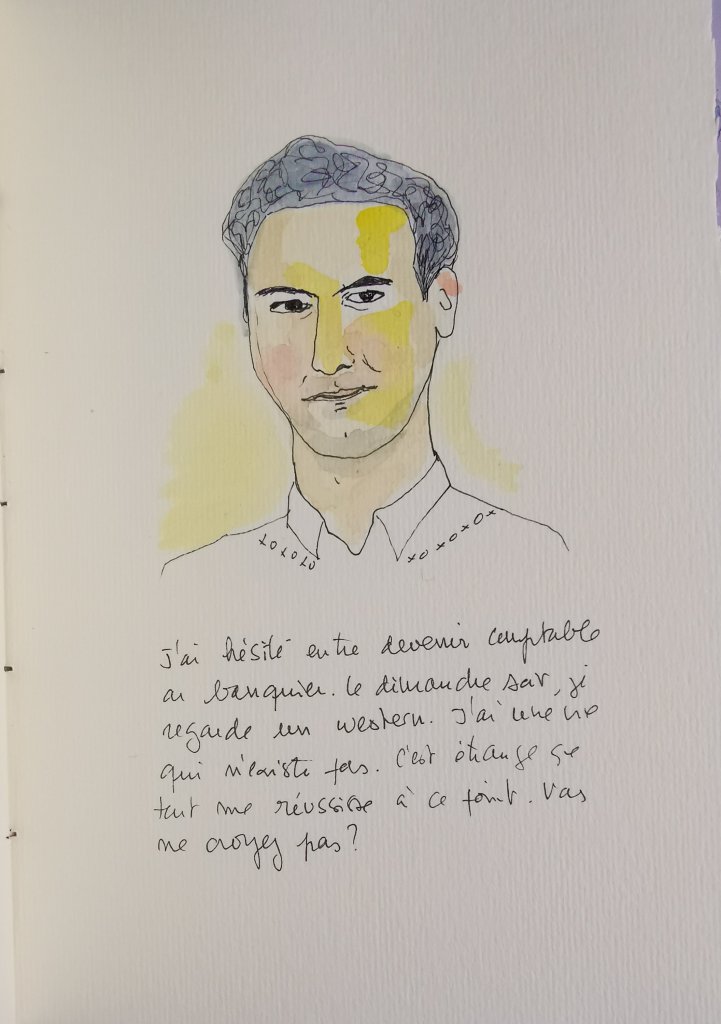 J'ai hésité entre devenir comptable
ou banquier. Le dimanche soir, je
regarde un western. J'ai une vie
qui n'existe pas. C'est étrange que
tout me réussisse à ce point. Vous
ne croyez pas?